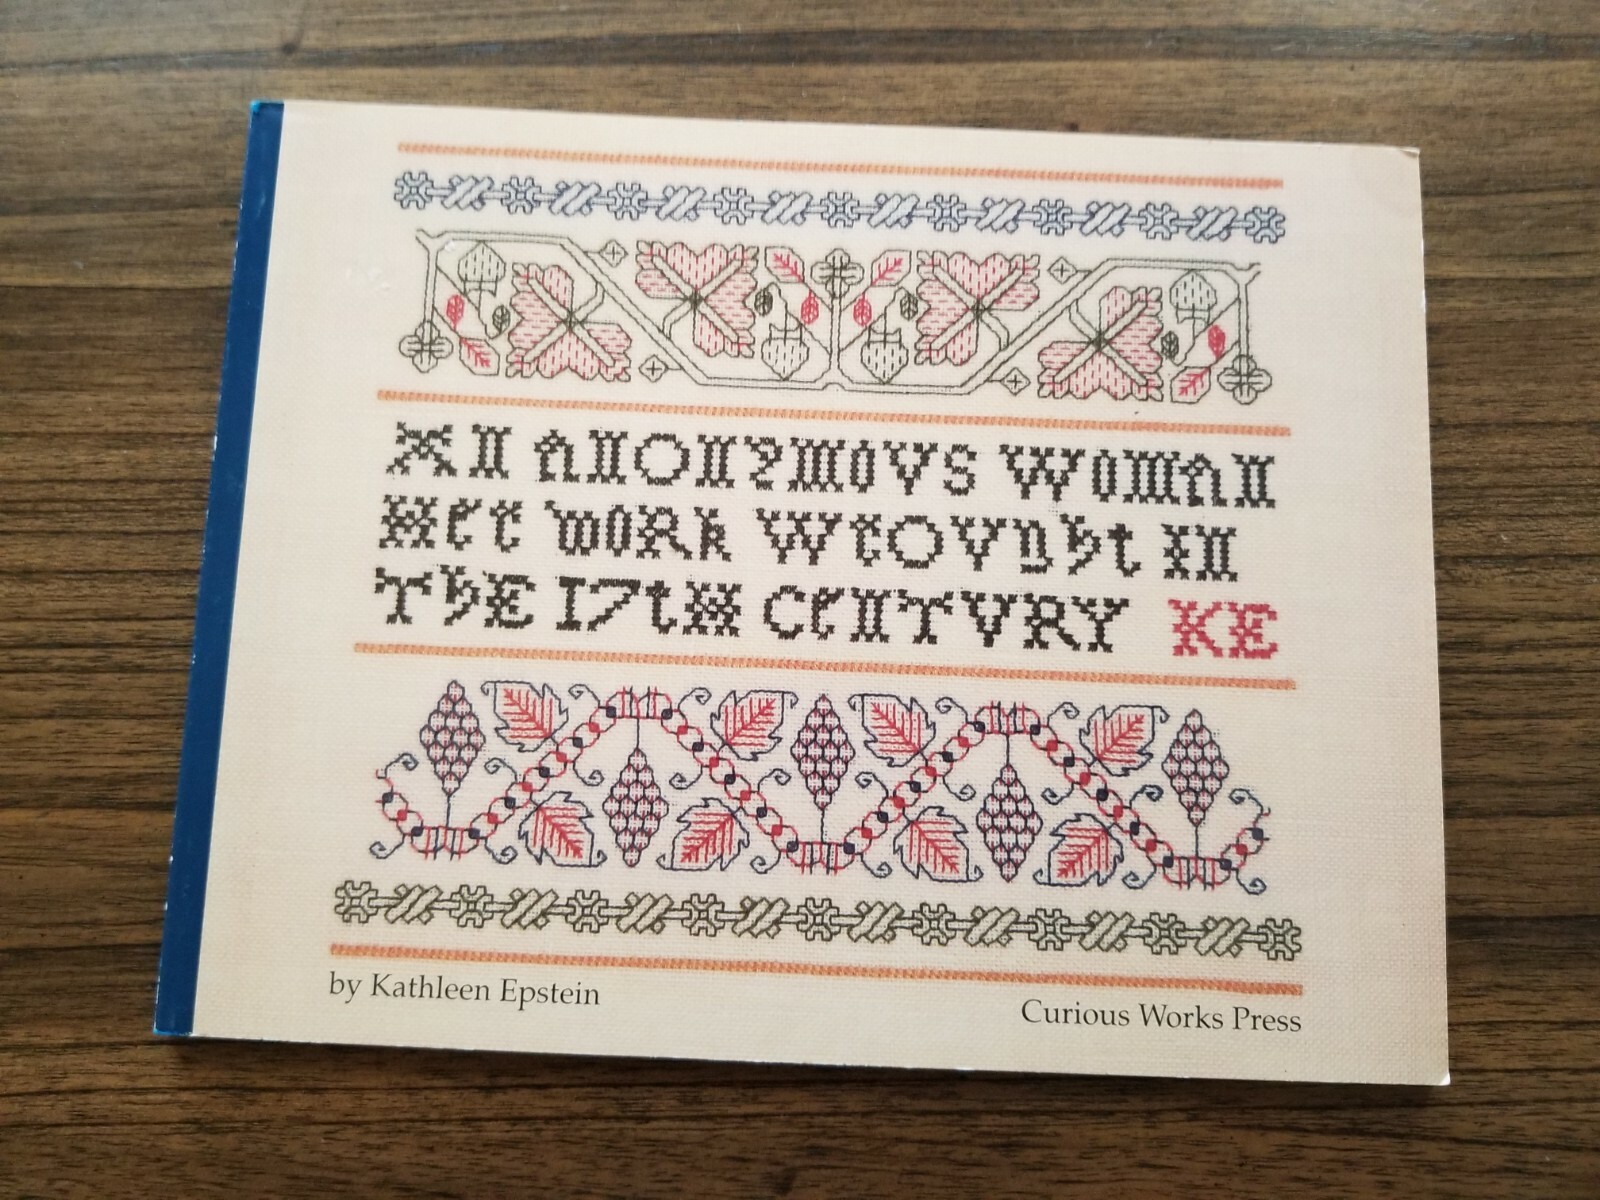 AN ANONYMOVS WOMAN
Her WORk WrOVght IN
ThE 17tH CeNTVRY KE
by Kathleen Epstein
Curious Works Press